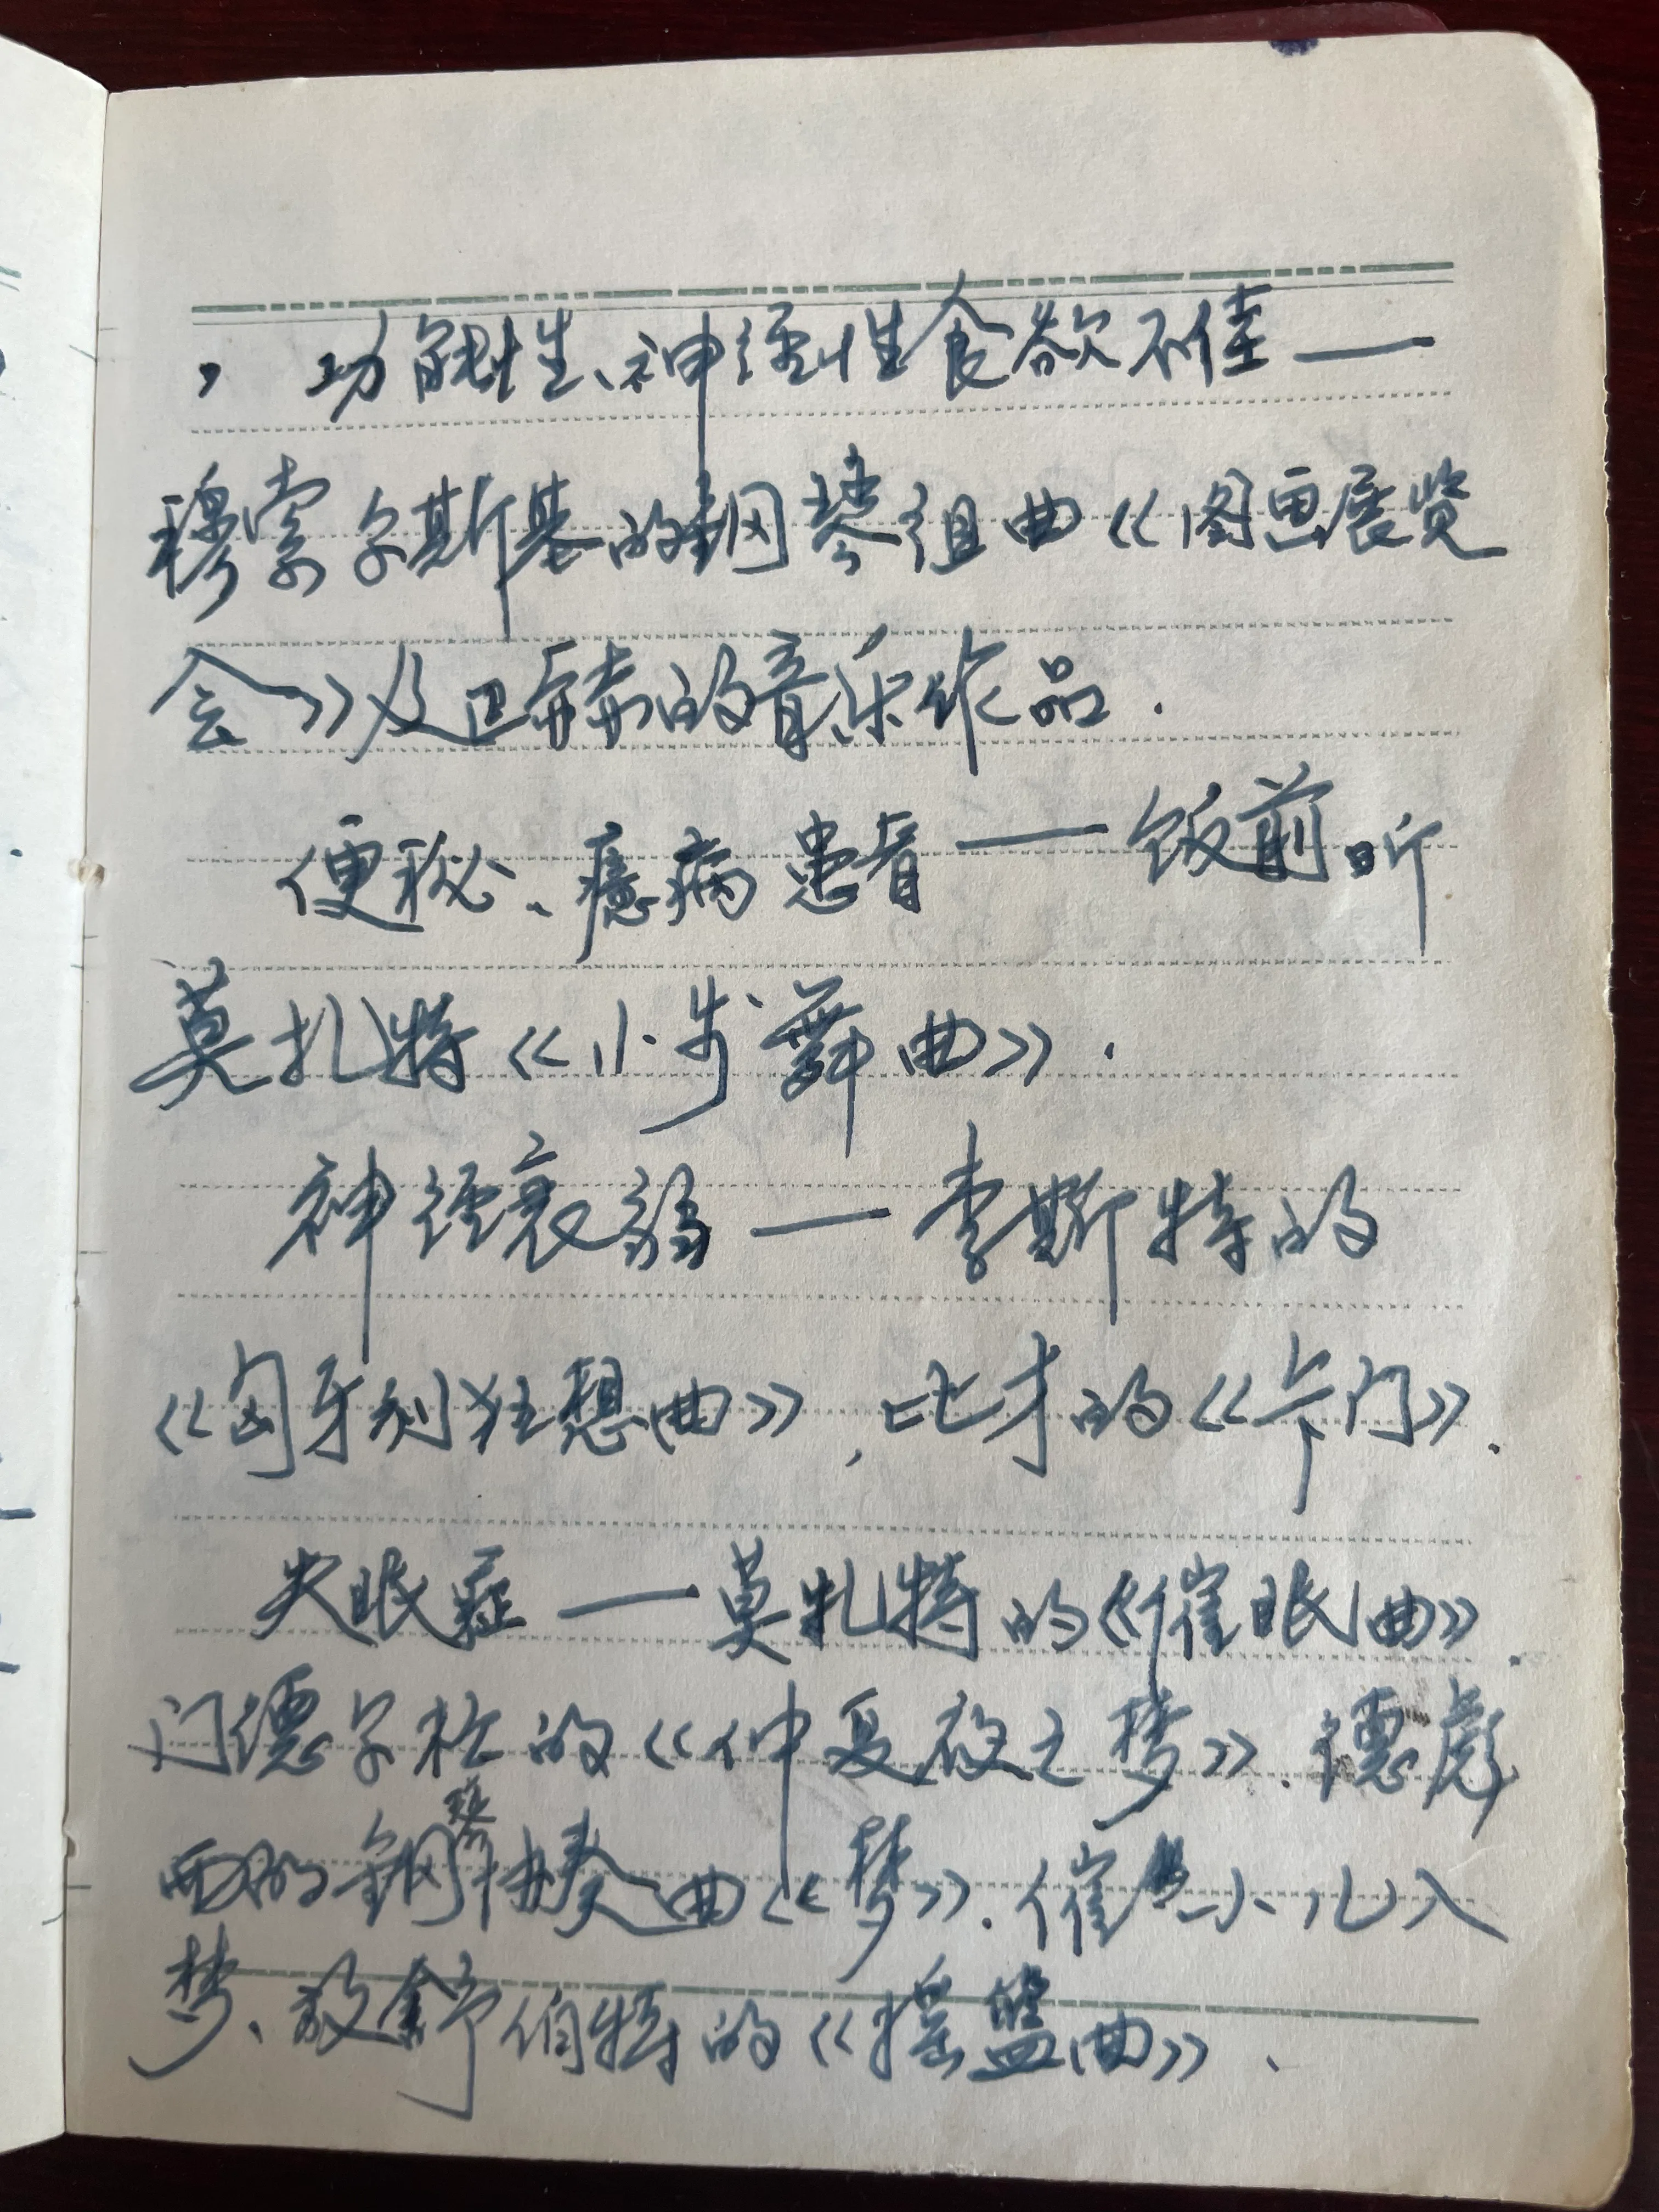 ，功能性、神经性食欲不佳——
穆索尔斯基的钢琴组曲《图画展览
会》及巴赫的音乐作品.
便秘、癔病患者——饭前听
莫扎特《小步舞曲》.
神经衰弱——李斯特的
《匈牙利狂想曲》,比才的《卡门》.
失眠症——莫扎特的《催眠曲》.
门德尔松的《仲夏夜之梦》.德彪
西的钢琴协奏曲《梦》.催小儿入
梦、放舒伯特的《摇篮曲》、